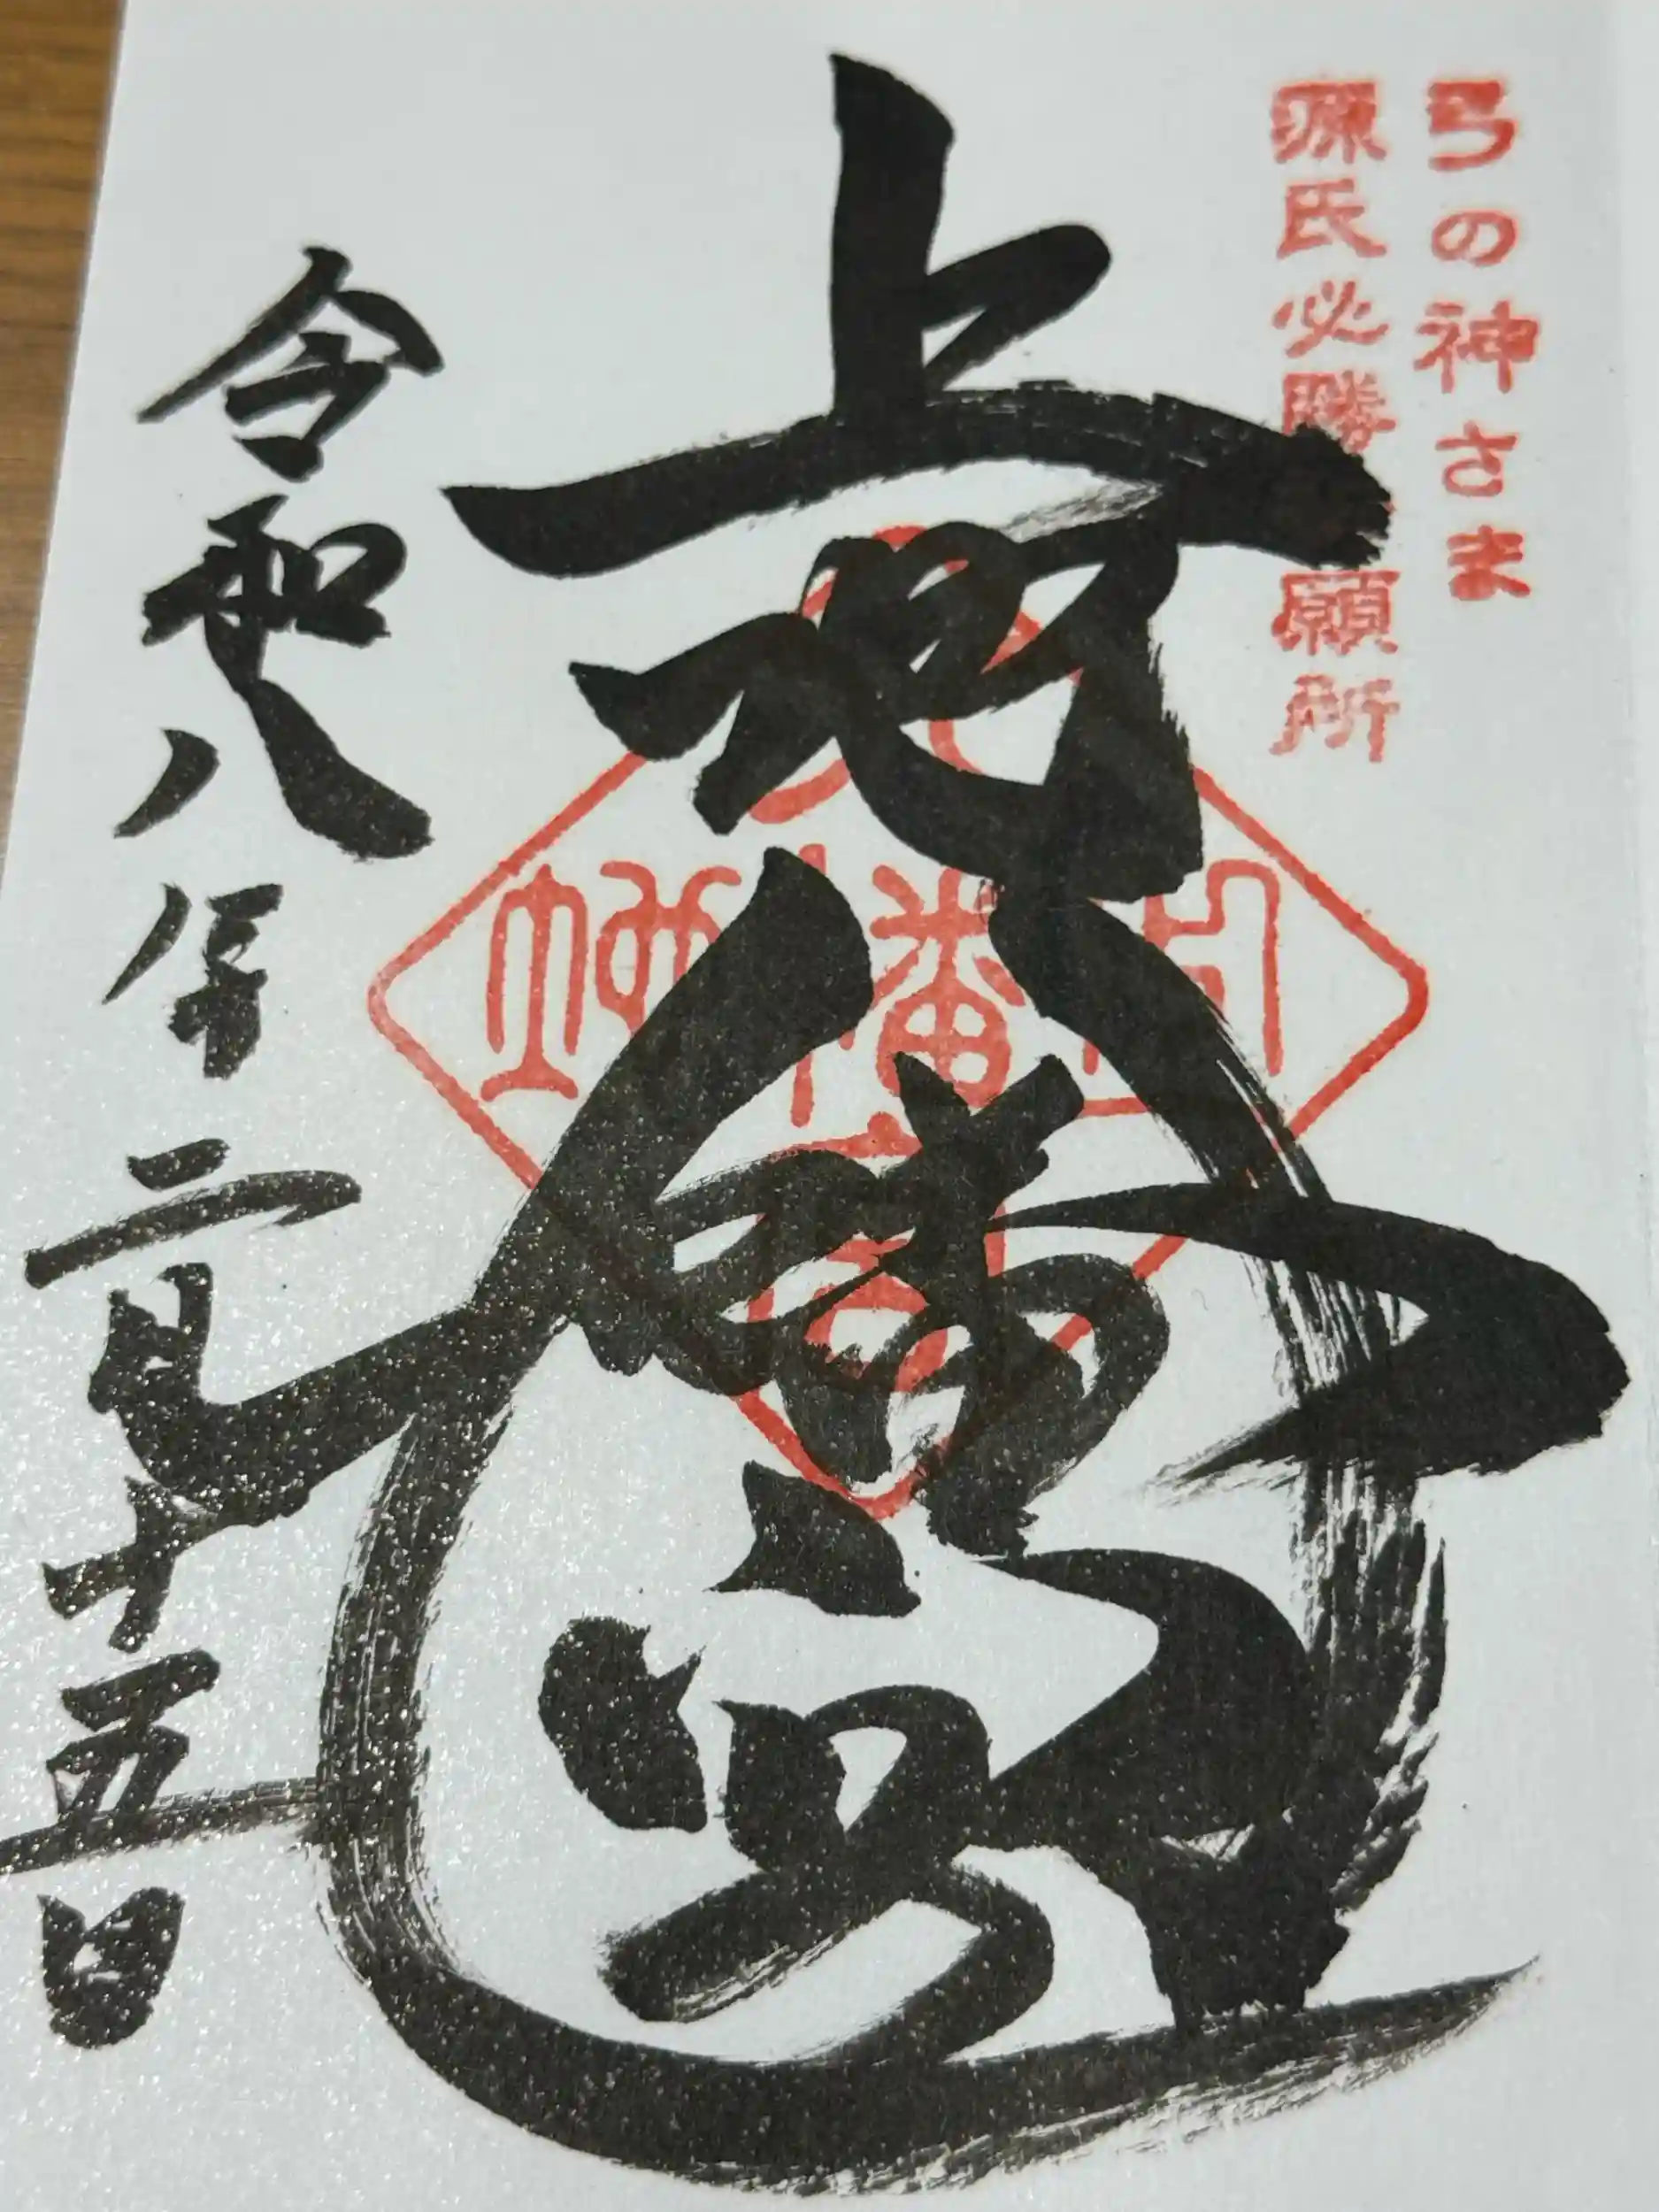 弓の神さま
源氏必勝願所
上地八幡宮
令和八年二月十五日